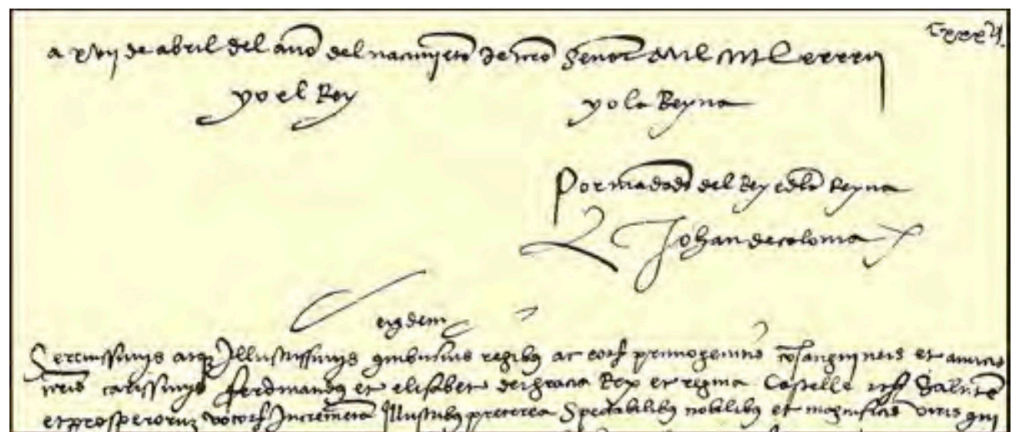 Cxxxvj
a xvij de abril del año del nacimjēto de nr̄o señor Mil cccc Lxxxxij
yo el Rey
yo la Reyna
Por mādado del Rey e dla Reyna
Johan de coloma
eisdem
Serenissimis atq Illustrissimis quibusuis regibus ac eorum primogenitis cōsanguineis et amicis
nr̄is carissimis ferdinandus et elisabet dei gracia Rex et regina Castelle Salutē
et prosperorum votorum Incremētū Illustribus preterea Spectabilibus nobilibus et magnificis viris qui